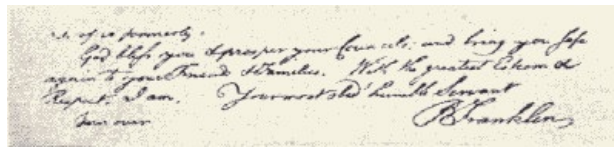 of so formerly.
God bless you & prosper your Councils; and bring you safe
again to your Friends & Families. With the greatest Esteem &
Respect, I am, Your most obed' humble Servant
B Franklin
Turn over